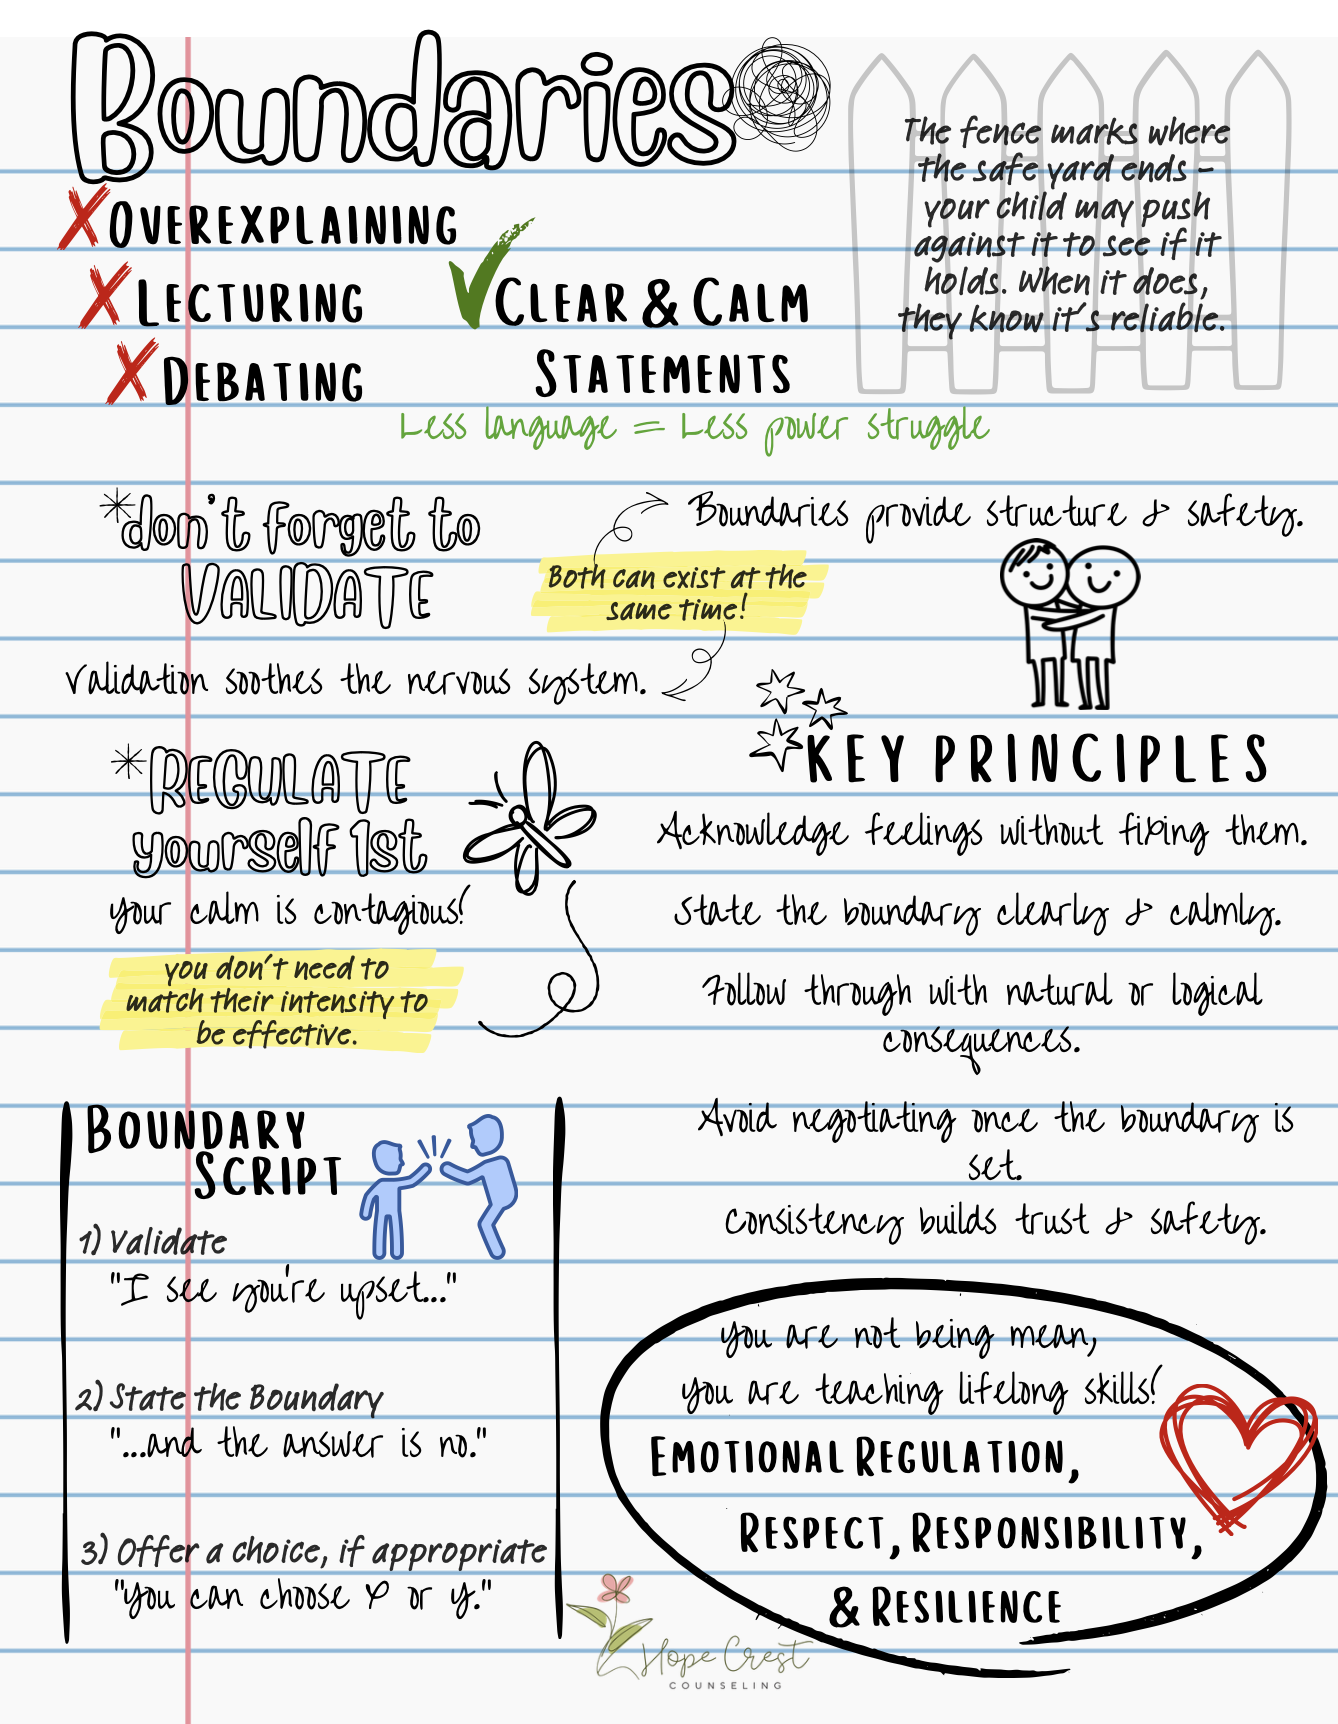 Boundaries
The fence marks where
the safe yard ends -
your child may push
against it to see if it
holds. When it does,
they know it's reliable.
OVEREXPLAINING
LECTURING
DEBATING
CLEAR & CALM
STATEMENTS
Less language = Less power struggle
*don't forget to
VALIDATE
Boundaries provide structure & safety.
Both can exist at the
same time!
Validation soothes the nervous system.
*REGULATE
yourself 1st
your calm is contagious!
you don't need to
match their intensity to
be effective.
KEY PRINCIPLES
Acknowledge feelings without fixing them.
State the boundary clearly & calmly.
Follow through with natural or logical
consequences.
Avoid negotiating once the boundary is
set.
Consistency builds trust & safety.
BOUNDARY
SCRIPT
1) Validate
"I see you're upset..."
2) State the Boundary
"...and the answer is no."
3) Offer a choice, if appropriate
"You can choose X or Y."
You are not being mean,
you are teaching lifelong skills!
EMOTIONAL REGULATION,
RESPECT, RESPONSIBILITY,
& RESILIENCE
Hope Crest
COUNSELING